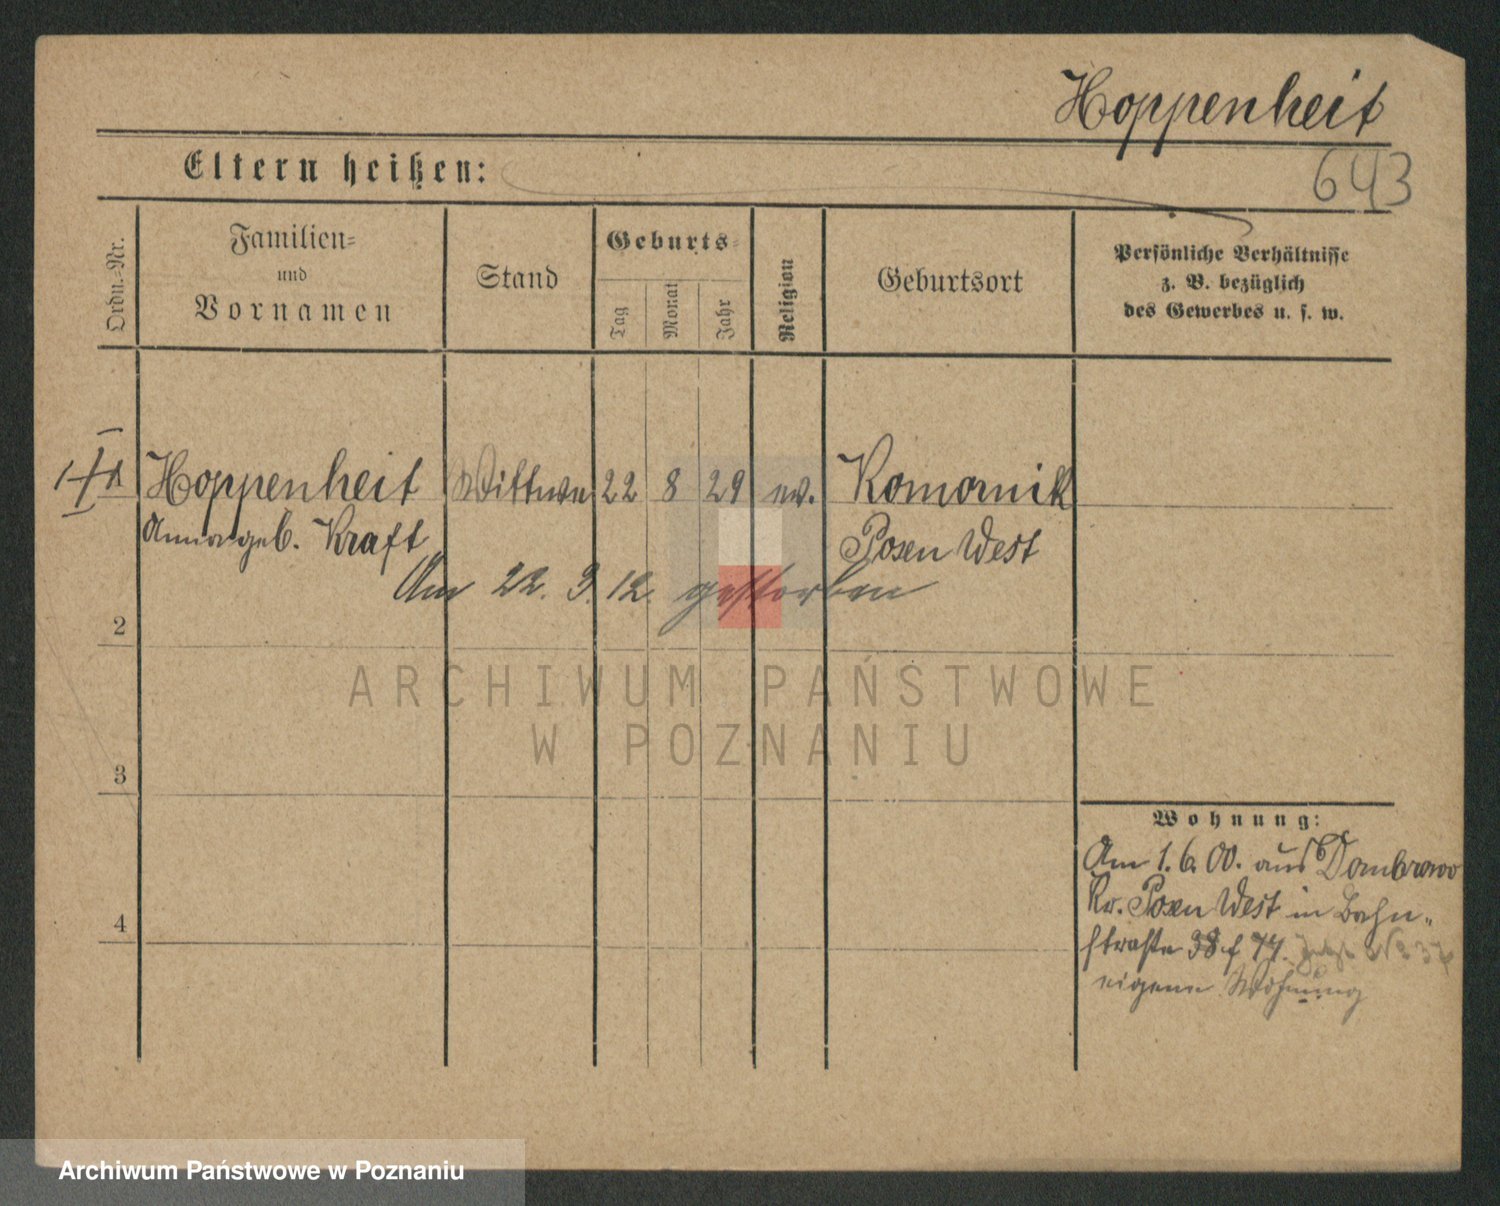 Hoppenheit
Eltern heißen:
643
Ordn.-Nr.
Familien-
und
Vornamen
Stand
Geburts-
Tag
Monat
Jahr
Religion
Geburtsort
Persönliche Verhältnisse
z. B. bezüglich
des Gewerbes u. s. w.
1 Hoppenheit Wittwe 22 8 29 ev. Komornik
Anna geb. Kraft Posen West
Am 22. 3. 12. gestorben
2
ARCHIWUM PAŃSTWOWE
W POZNANIU
3
Wohnung:
Am 1. 6. 00. aus Dombrowo
Kr. Posen West in Bahn-
4
straße 38 f
eigene Wohnung
Archiwum Państwowe w Poznaniu